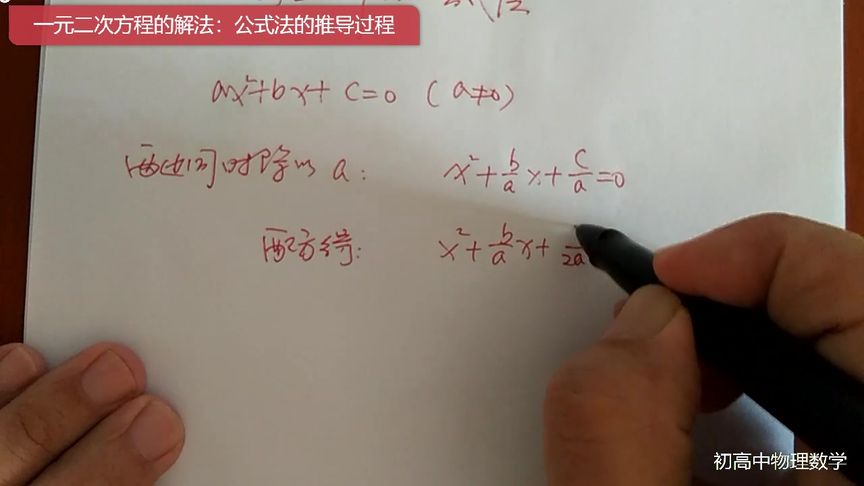 一元二次方程的解法：公式法的推导过程
ax²+bx+c=0 (a≠0)
两边同时除以a: x²+\frac{b}{a}x+\frac{c}{a}=0
配方得: x²+\frac{b}{a}x+\frac{}{2a}
初高中物理数学